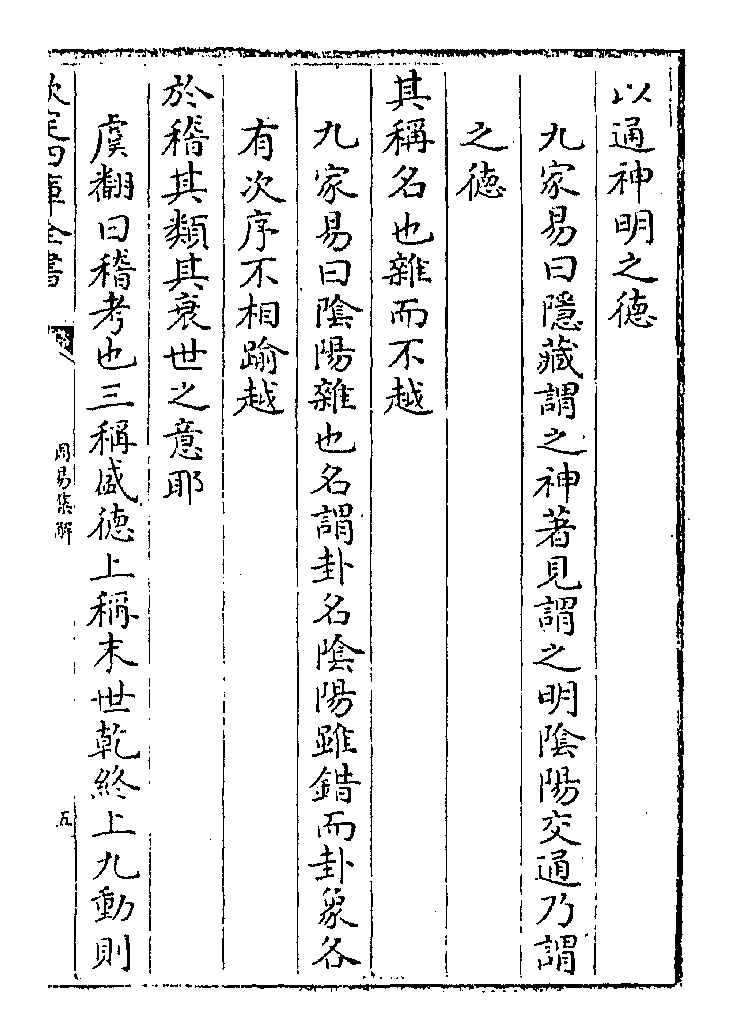 以通神明之徳
九家易曰隱藏謂之神著見謂之明陰陽交通乃謂
之徳
其稱名也雜而不越
九家易曰陰陽雜也名謂卦名陰陽雖錯而卦象各
有次序不相踰越
於稽其類其衰世之意耶
虞翻曰稽考也三稱盛徳上稱末世乾終上九動則
欽定四庫全書
周易集解
五